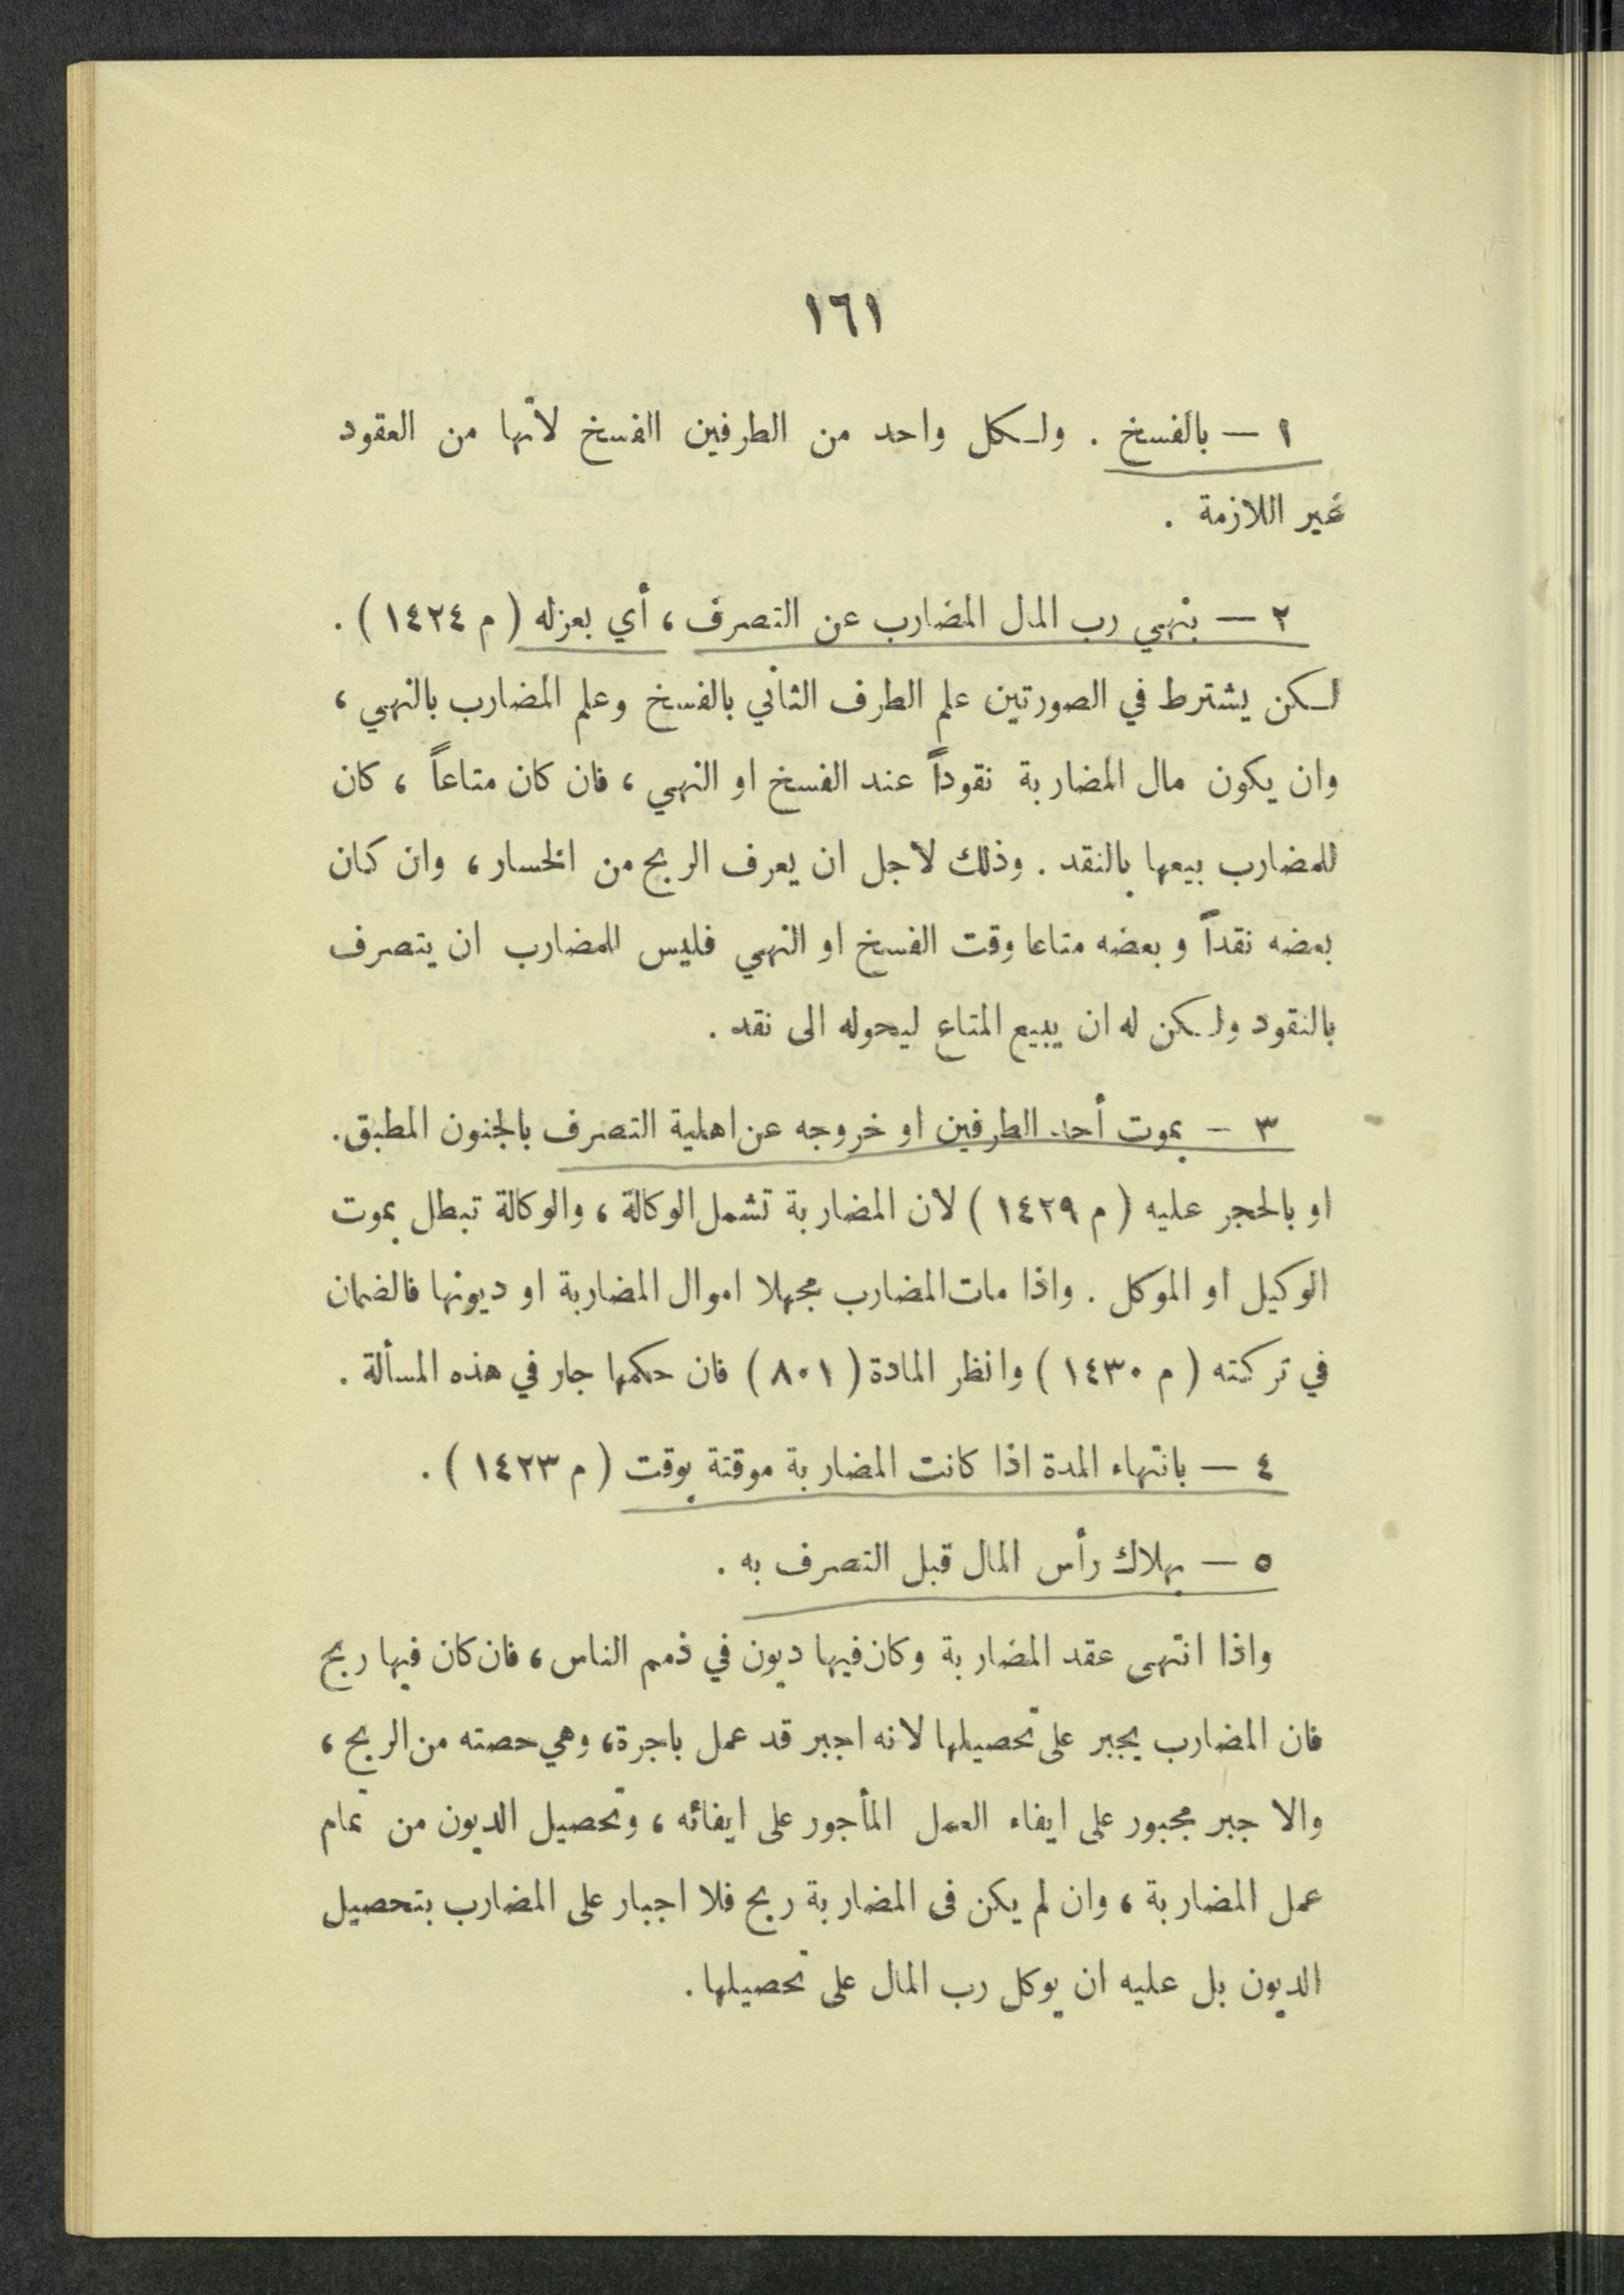 ١٦١
١ — بالفسخ . ولكل واحد من الطرفين الفسخ لأنها من العقود
غير اللازمة .
٢ — بنهي رب المال المضارب عن التصرف ، أي بعزله ( م ١٤٢٤ ) .
لكن يشترط في الصورتين علم الطرف الثاني بالفسخ وعلم المضارب بالنهي ،
وان يكون مال المضاربة نقوداً عند الفسخ او النهي ، فان كان متاعاً ، كان
للمضارب بيعها بالنقد . وذلك لاجل ان يعرف الربح من الخسار ، وان كان
بعضه نقداً وبعضه متاعا وقت الفسخ او النهي فليس للمضارب ان يتصرف
بالنقود ولكن له ان يبيع المتاع ليحوله الى نقد .
٣ — بموت أحد الطرفين او خروجه عن اهلية التصرف بالجنون المطبق .
او بالحجر عليه ( م ١٤٢٩ ) لان المضاربة تشمل الوكالة ، والوكالة تبطل بموت
الوكيل او الموكل . واذا مات المضارب مجهلا اموال المضاربة او ديونها فالضمان
في تركته ( م ١٤٣٠ ) وانظر المادة ( ٨٠١ ) فان حكمها جار في هذه المسألة .
٤ — بانتهاء المدة اذا كانت المضاربة موقتة بوقت ( م ١٤٢٣ ) .
٥ — بهلاك رأس المال قبل التصرف به .
واذا انتهى عقد المضاربة وكان فيها ديون في ذمم الناس ، فان كان فيها ربح
فان المضارب يجبر على تحصيلها لانه اجبر قد عمل باجرة ، وهي حصته من الربح ،
والا جبر مجبور على ايفاء العمل المأجور على ايفائه ، وتحصيل الديون من تمام
عمل المضاربة ، وان لم يكن فى المضاربة ربح فلا اجبار على المضارب بتحصيل
الديون بل عليه ان يوكل رب المال على تحصيلها .